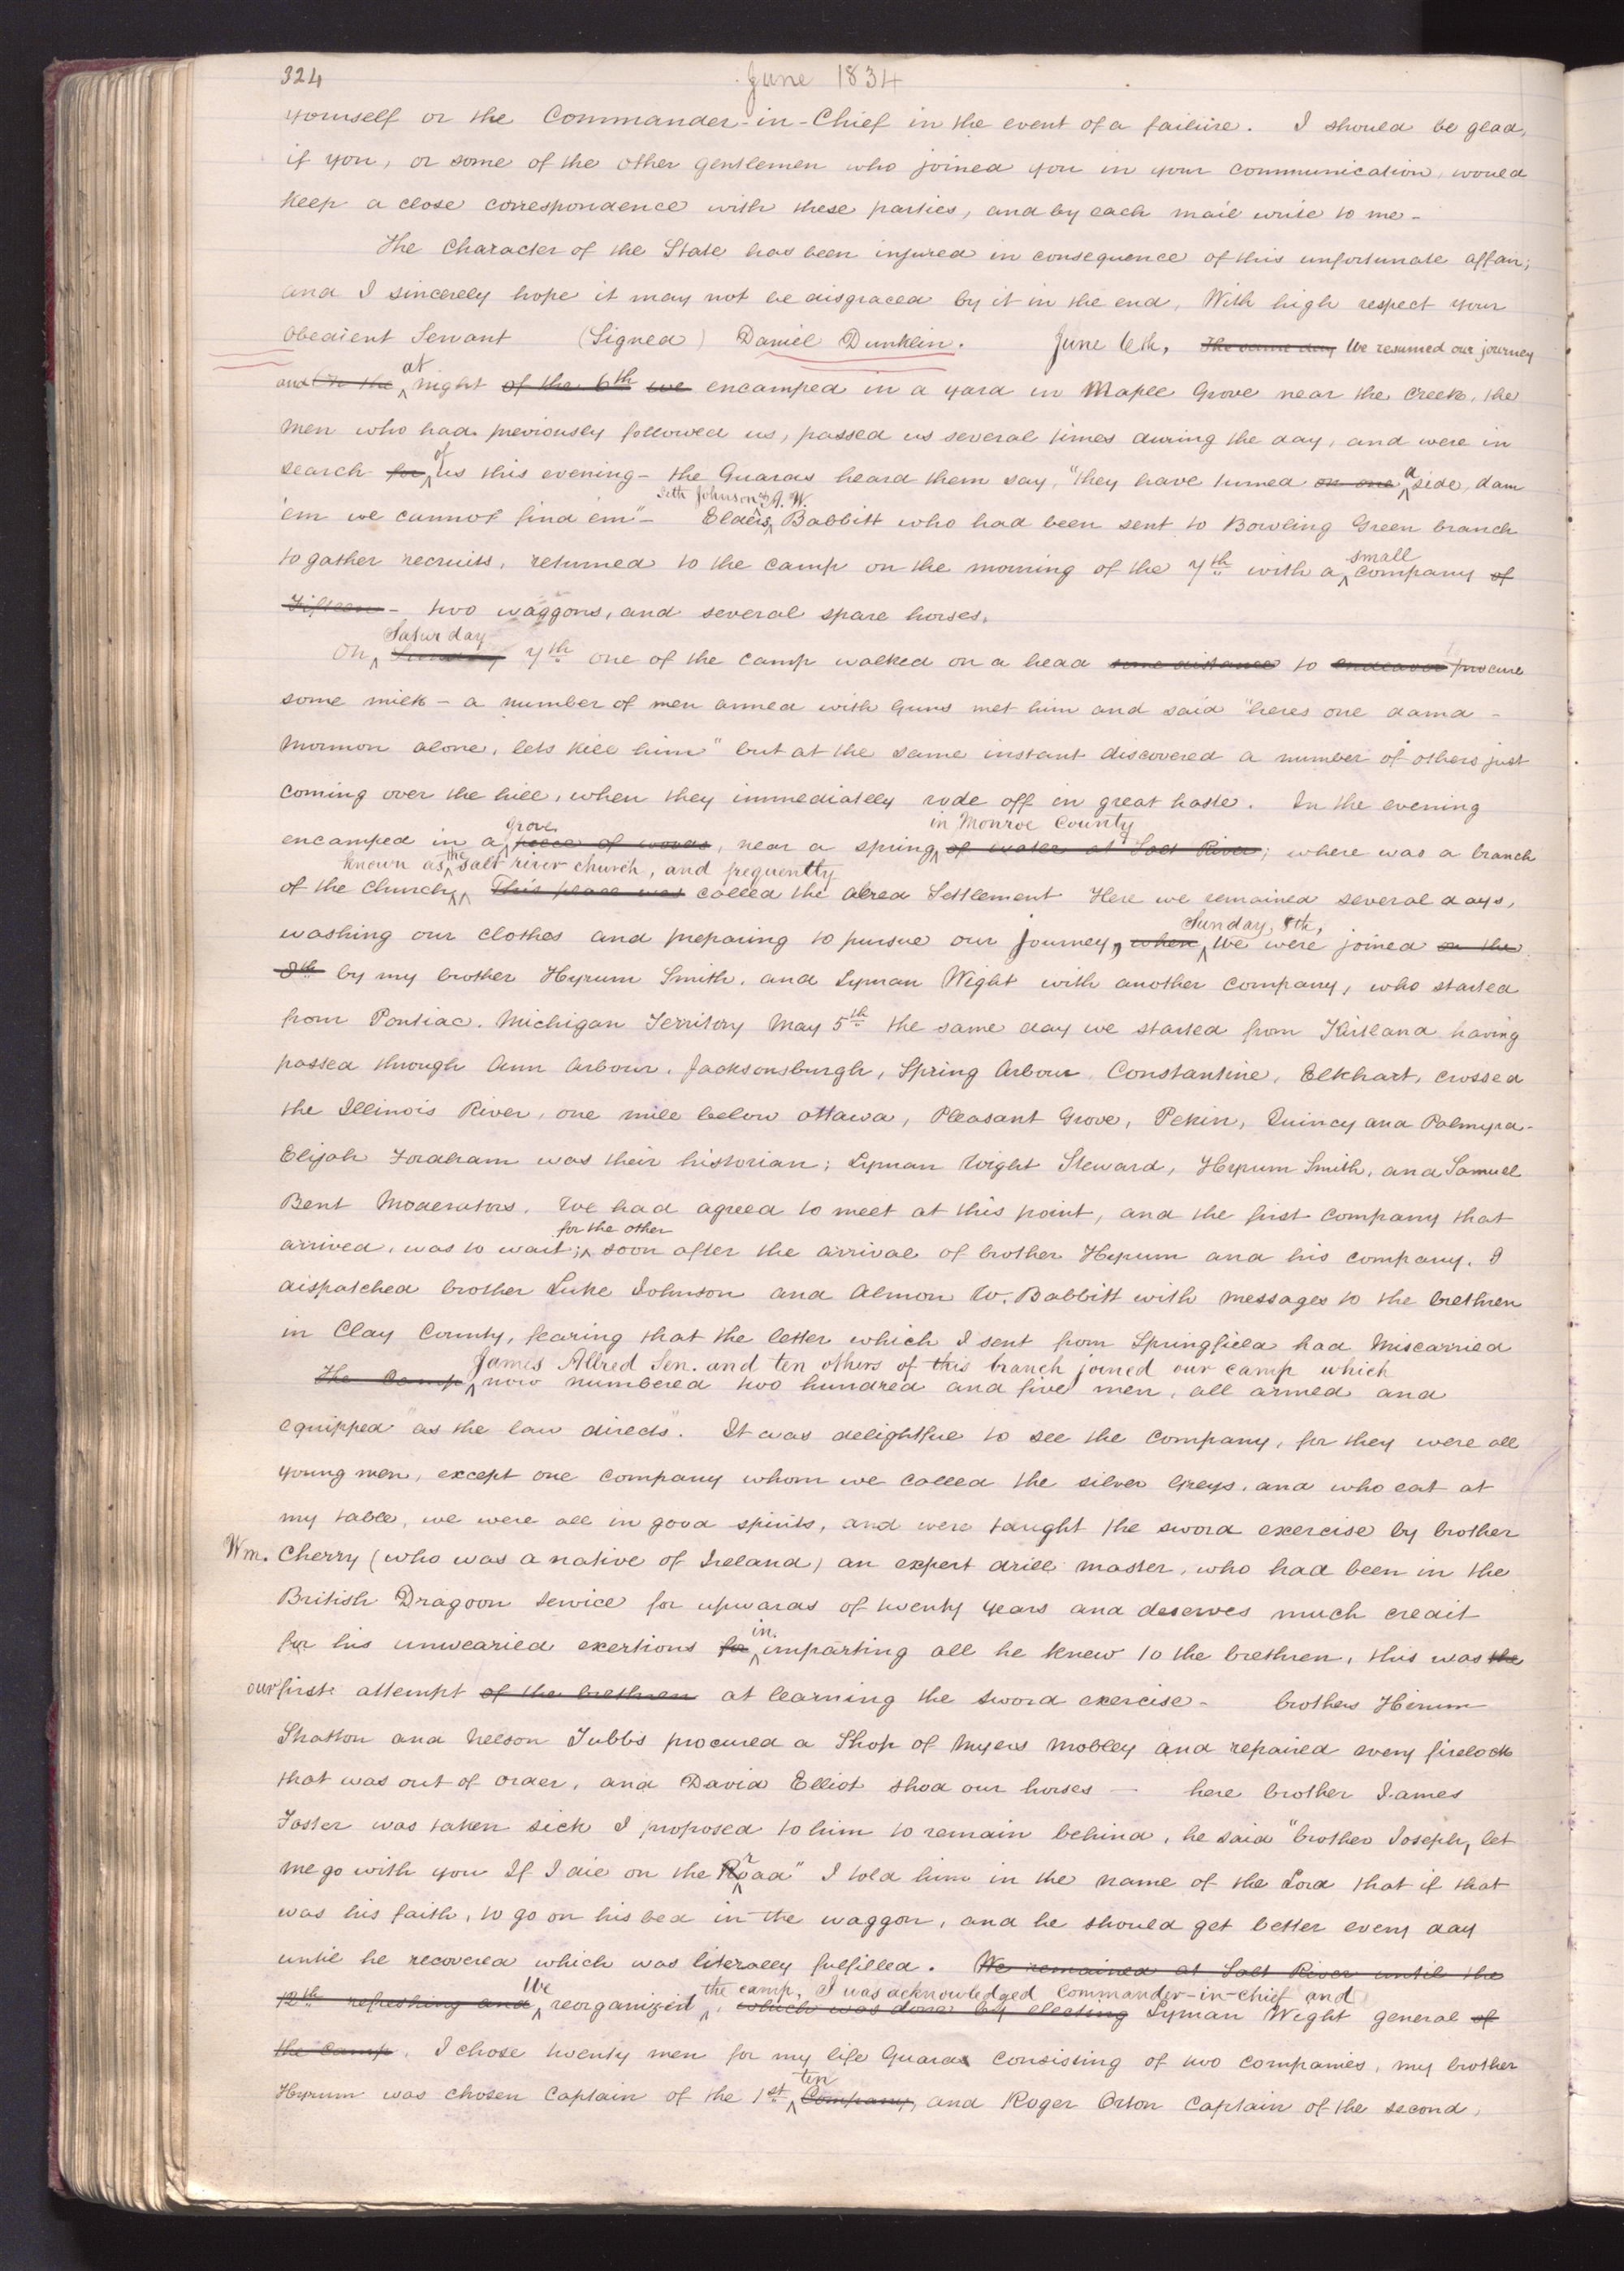 324
June 1834
yourself or the Commander-in-Chief in the event of a failure. I should be glad,
if you, or some of the other gentlemen who joined you in your communication, would
keep a close correspondence with these parties, and by each mail write to me-
The character of the State has been injured in consequence of this unfortunate affair;
and I sincerely hope it may not be disgraced by it in the end, With high respect your
obedient Servant (Signed) Daniel Dunklin. June 6th, The same day We resumed our journey
at
and On the night of the 6th we encamped in a yard in Maple Grove near the Creek, the
men who had previously followed us, passed us several times during the day, and were in
of a
search for us this evening- the Guards heard them say, "they have turned on one side, dam
Seth Johnson & A. W.
'em we cannot find em"- Elders Babbitt who had been sent to Bowling Green branch
small
to gather recruits, returned to the camp on the morning of the 7th with a company of
Fifteen- two waggons, and several spare horses.
Saturday
On Sunday 7th one of the camp walked on a head some distance to endeavor procure
some milk - a number of men armed with Guns met him and said "heres one damd-
Mormon alone, lets kill him" but at the same instant discovered a number of others just
coming over the hill, when they immediately rode off in great haste. In the evening
grove in Monroe County
encamped in a piece of woods, near a spring of water at Salt River; where was a branch
known as the salt river church, and frequently
of the church, This place was called the alred Settlement Here we remained several days,
Sunday, 8th,
washing our clothes and preparing to pursue our journey, when we were joined on the
8th by my brother Hyrum Smith, and Lyman Wight with another company, who started
from Pontiac. Michigan Territory May 5th the same day we started from Kirtland having
passed through Ann Arbour, Jacksonsburgh, Spring Arbour, Constantine, Elkhart, crossed
the Illinois River, one mile below ottawa, Pleasant Grove, Pekin, Quincy and Palmyra-
Elijah Fordham was their historian; Lyman Wight Steward, Hyrum Smith, and Samuel
Bent Moderators. We had agreed to meet at this point, and the first company that
for the other
arrived, was to wait; soon after the arrival of brother Hyrum and his company. I
dispatched brother Luke Johnson and Almon W. Babbitt with messages to the brethren
in Clay County, fearing that the letter which I sent from Springfield had Miscarried
James Allred Sen. and ten others of this branch joined our camp which
The Camp now numbered two hundred and five men, all armed and
equipped "as the law directs". It was delightful to see the company, for they were all
young men, except one company whom we called the silver Greys, and who eat at
my table, we were all in good spirits, and were taught the sword exercise by brother
Wm. Cherry (who was a native of Ireland) an expert drill master, who had been in the
British Dragoon service for upwards of twenty years and deserves much credit
in
for his unwearied exertions for imparting all he knew to the brethren, this was the
our first attempt of the brethren at learning the sword exercise- brothers Hirum
Stratton and Nelson Tubbs procured a Shop of Myers Mobley and repaired every firelock
that was out of order, and David Elliot shod our horses - here brother James
Foster was taken sick I proposed to him to remain behind, he said "brother Joseph, let
me go with you If I die on the Road" I told him in the name of the Lord that if that
was his faith, to go on his bed in the waggon, and he should get better every day
until he recovered which was literally fulfilled. We remained at Salt River until the
We the camp, I was acknowledged Commander-in-chief and
12th refreshing and reorganized, which was done by electing Lyman Wight general of
the camp. I chose twenty men for my life Guards consisting of two companies, my brother
ten
Hyrum was chosen Captain of the 1st Company, and Roger Orton Captain of the second,